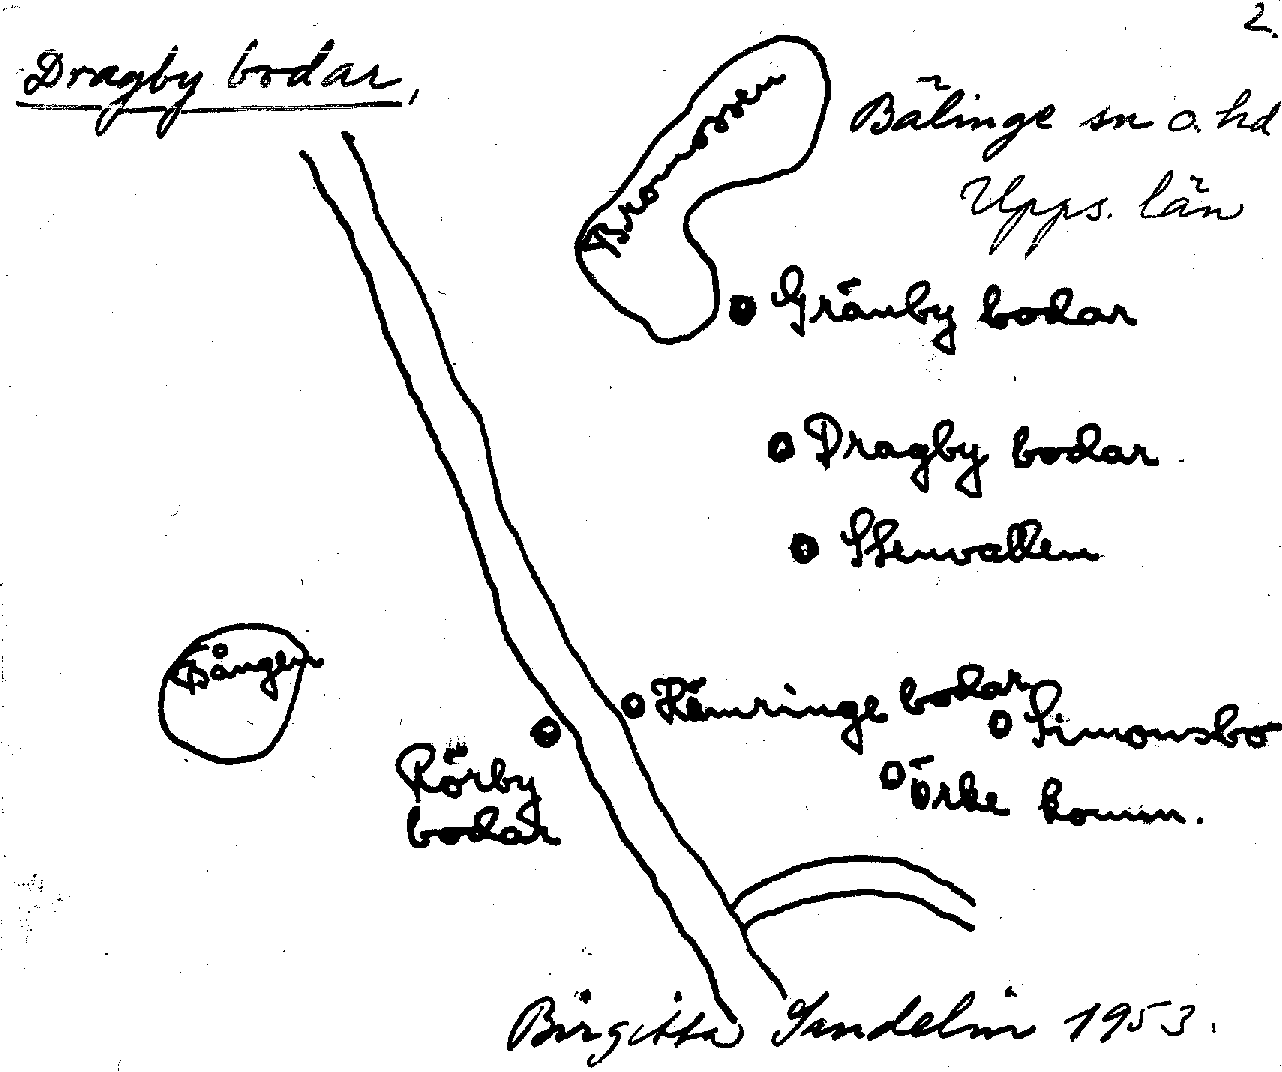 2.
Dragby bodar,
Bälinge sn o. hd
Upps. län
Bromossen
Gränby bodar
Dragby bodar
Stenvallen
Tången
Hämringe bodar
Simonsbo
Rörby
bodar
Örke komm.
Birgitta Sandelin 1953.